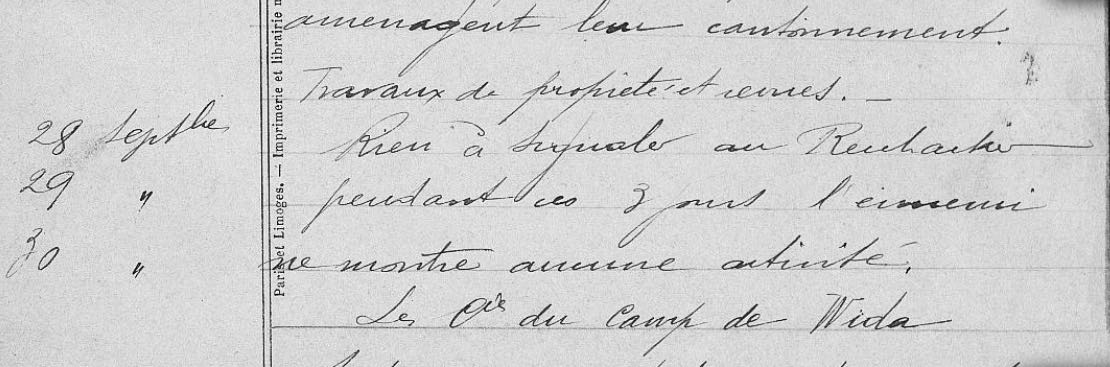 aménagent leur cantonnement.
Travaux de propreté et revues. —
28 Septbre Rien à signaler au Reichacker
29 " pendant ces 3 jours l'ennemi
30 " ne montre aucune activité.
Les Cies du Camp de Wida
Paris et Limoges. — Imprimerie et librairie